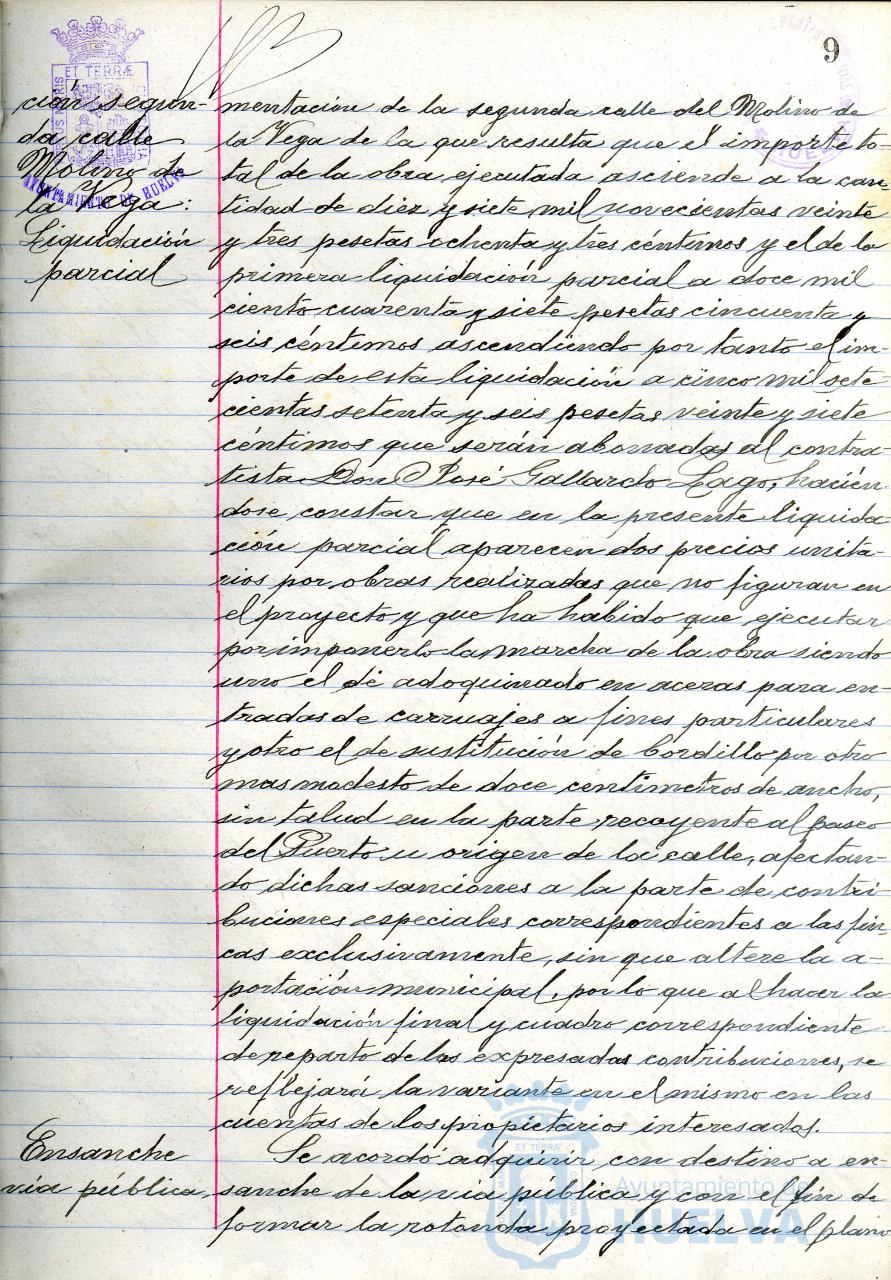 9
ción segun-
da calle
Molino de
la Vega:
Liquidación
parcial
ET TERRÆ
AYUNTAMIENTO DE HUELVA
mentación de la segunda calle del Molino de
la Vega de la que resulta que el importe to-
tal de la obra ejecutada asciende a la can-
tidad de diez y siete mil novecientas veinte
y tres pesetas ochenta y tres céntimos y el de la
primera liquidación parcial a doce mil
ciento cuarenta y siete pesetas cincuenta y
seis céntimos ascendiendo por tanto el im-
porte de esta liquidación a cinco mil sete-
cientas setenta y seis pesetas veinte y siete
céntimos que serán abonadas al contra-
tista Don José Gallardo Lago, hacién-
dose constar que en la presente liquida-
ción parcial aparecen dos precios unita-
rios por obras realizadas que no figuran en
el proyecto y que ha habido que ejecutar
por imponerlo la marcha de la obra siendo
uno el de adoquinado en aceras para en-
tradas de carruajes a fines particulares
y otro el de sustitución de bordillo por otro
mas modesto de doce centimetros de ancho,
sin talud en la parte recayente al paseo
del Puerto u origen de la calle, afectan-
do dichas sanciones a la parte de contri-
buciones especiales correspondientes a las fin-
cas exclusivamente, sin que altere la a-
portación municipal, por lo que al hacer la
liquidación final y cuadro correspondiente
de reparto de las expresadas contribuciones, se
reflejará la variante en el mismo en las
cuentas de los propietarios interesados.
Ensanche
vía pública.
Se acordó adquirir con destino a en-
sanche de la vía pública y con el fin de
formar la rotonda proyectada en el plano
ET TERRÆ
Ayuntamiento de
HUELVA